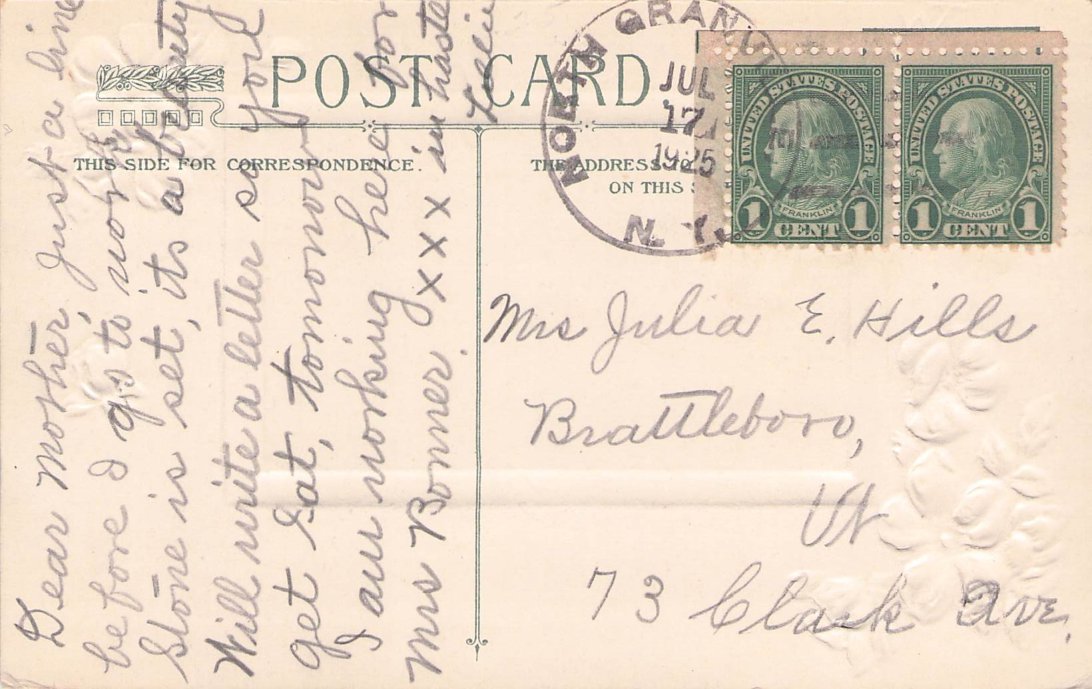 POST CARD
THIS SIDE FOR CORRESPONDENCE.
THE ADDRESS TO
ON THIS S
NORTH GRANVI
JUL
17
1925
N.Y.
UNITED STATES POSTAGE
FRANKLIN
1 CENT 1
UNITED STATES POSTAGE
FRANKLIN
1 CENT 1
Dear Mother, Just a line
before I go to work
Stone is set, its a beauty
Will write a letter so youl
get Sat, tomorrow
I am working here for
Mrs Bonner. xxx in haste
Mrs Julia E. Hills
Brattleboro,
Vt
73 Clark Ave.